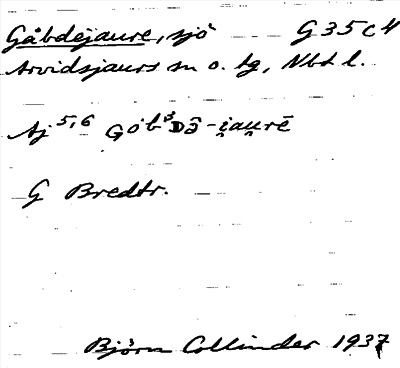 Gåbdejaure, sjö G 35 c 4
Arvidsjaurs sn o. tg, Nbt l.
Aj 5,6 Gob³Dā̂-i̯au̯rē
G Bredtr.
Björn Collinder 1937